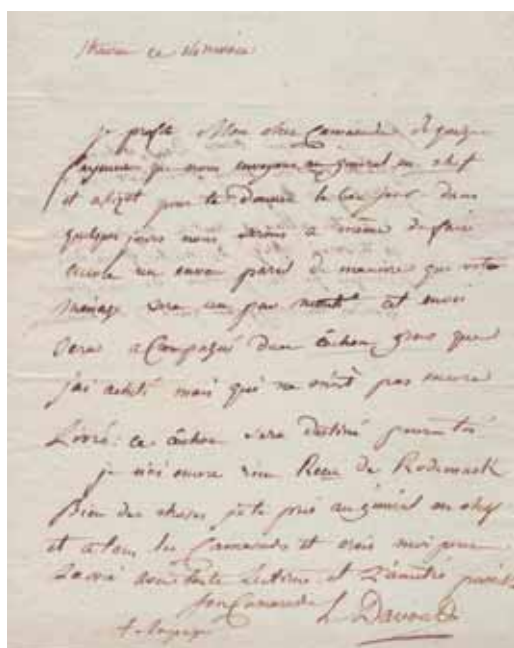 ce
je profite Mon cher Camarade de quelques
que nous envoyons au général en chef
et pour te Donner le bon jour dans
quelques jours nous serons a même de faire
encore un envoi pareil de maniere que votre
menage sera un peu monté cet envoi
Sera a Compagné d'un Cochon gros que
j'ai acheté mais qui ne m'est pas encore
Livré: ce Cochon sera destiné pour toi
je n'ai encore rien Recu de Rodemack
Bien des choses je te prie au général en chef
et a tous les Camarades et crois moi pour
la vie avec toute L'estime et L'amitié
ton Camarade L. Davout